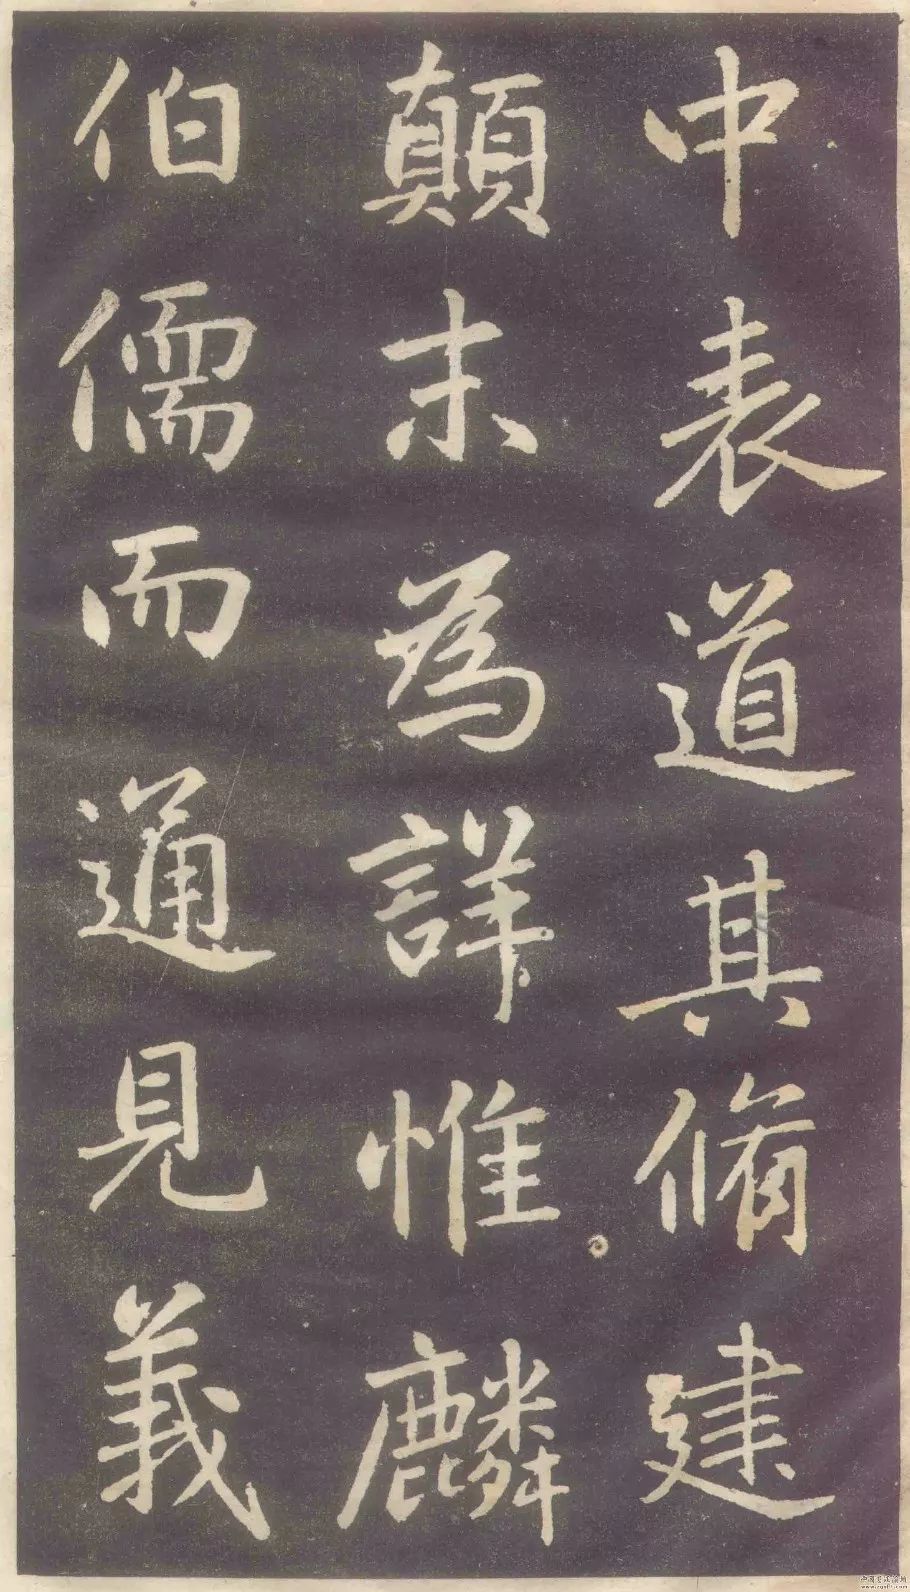 中表道其脩建
顛末為詳惟麟
伯儒而通見義